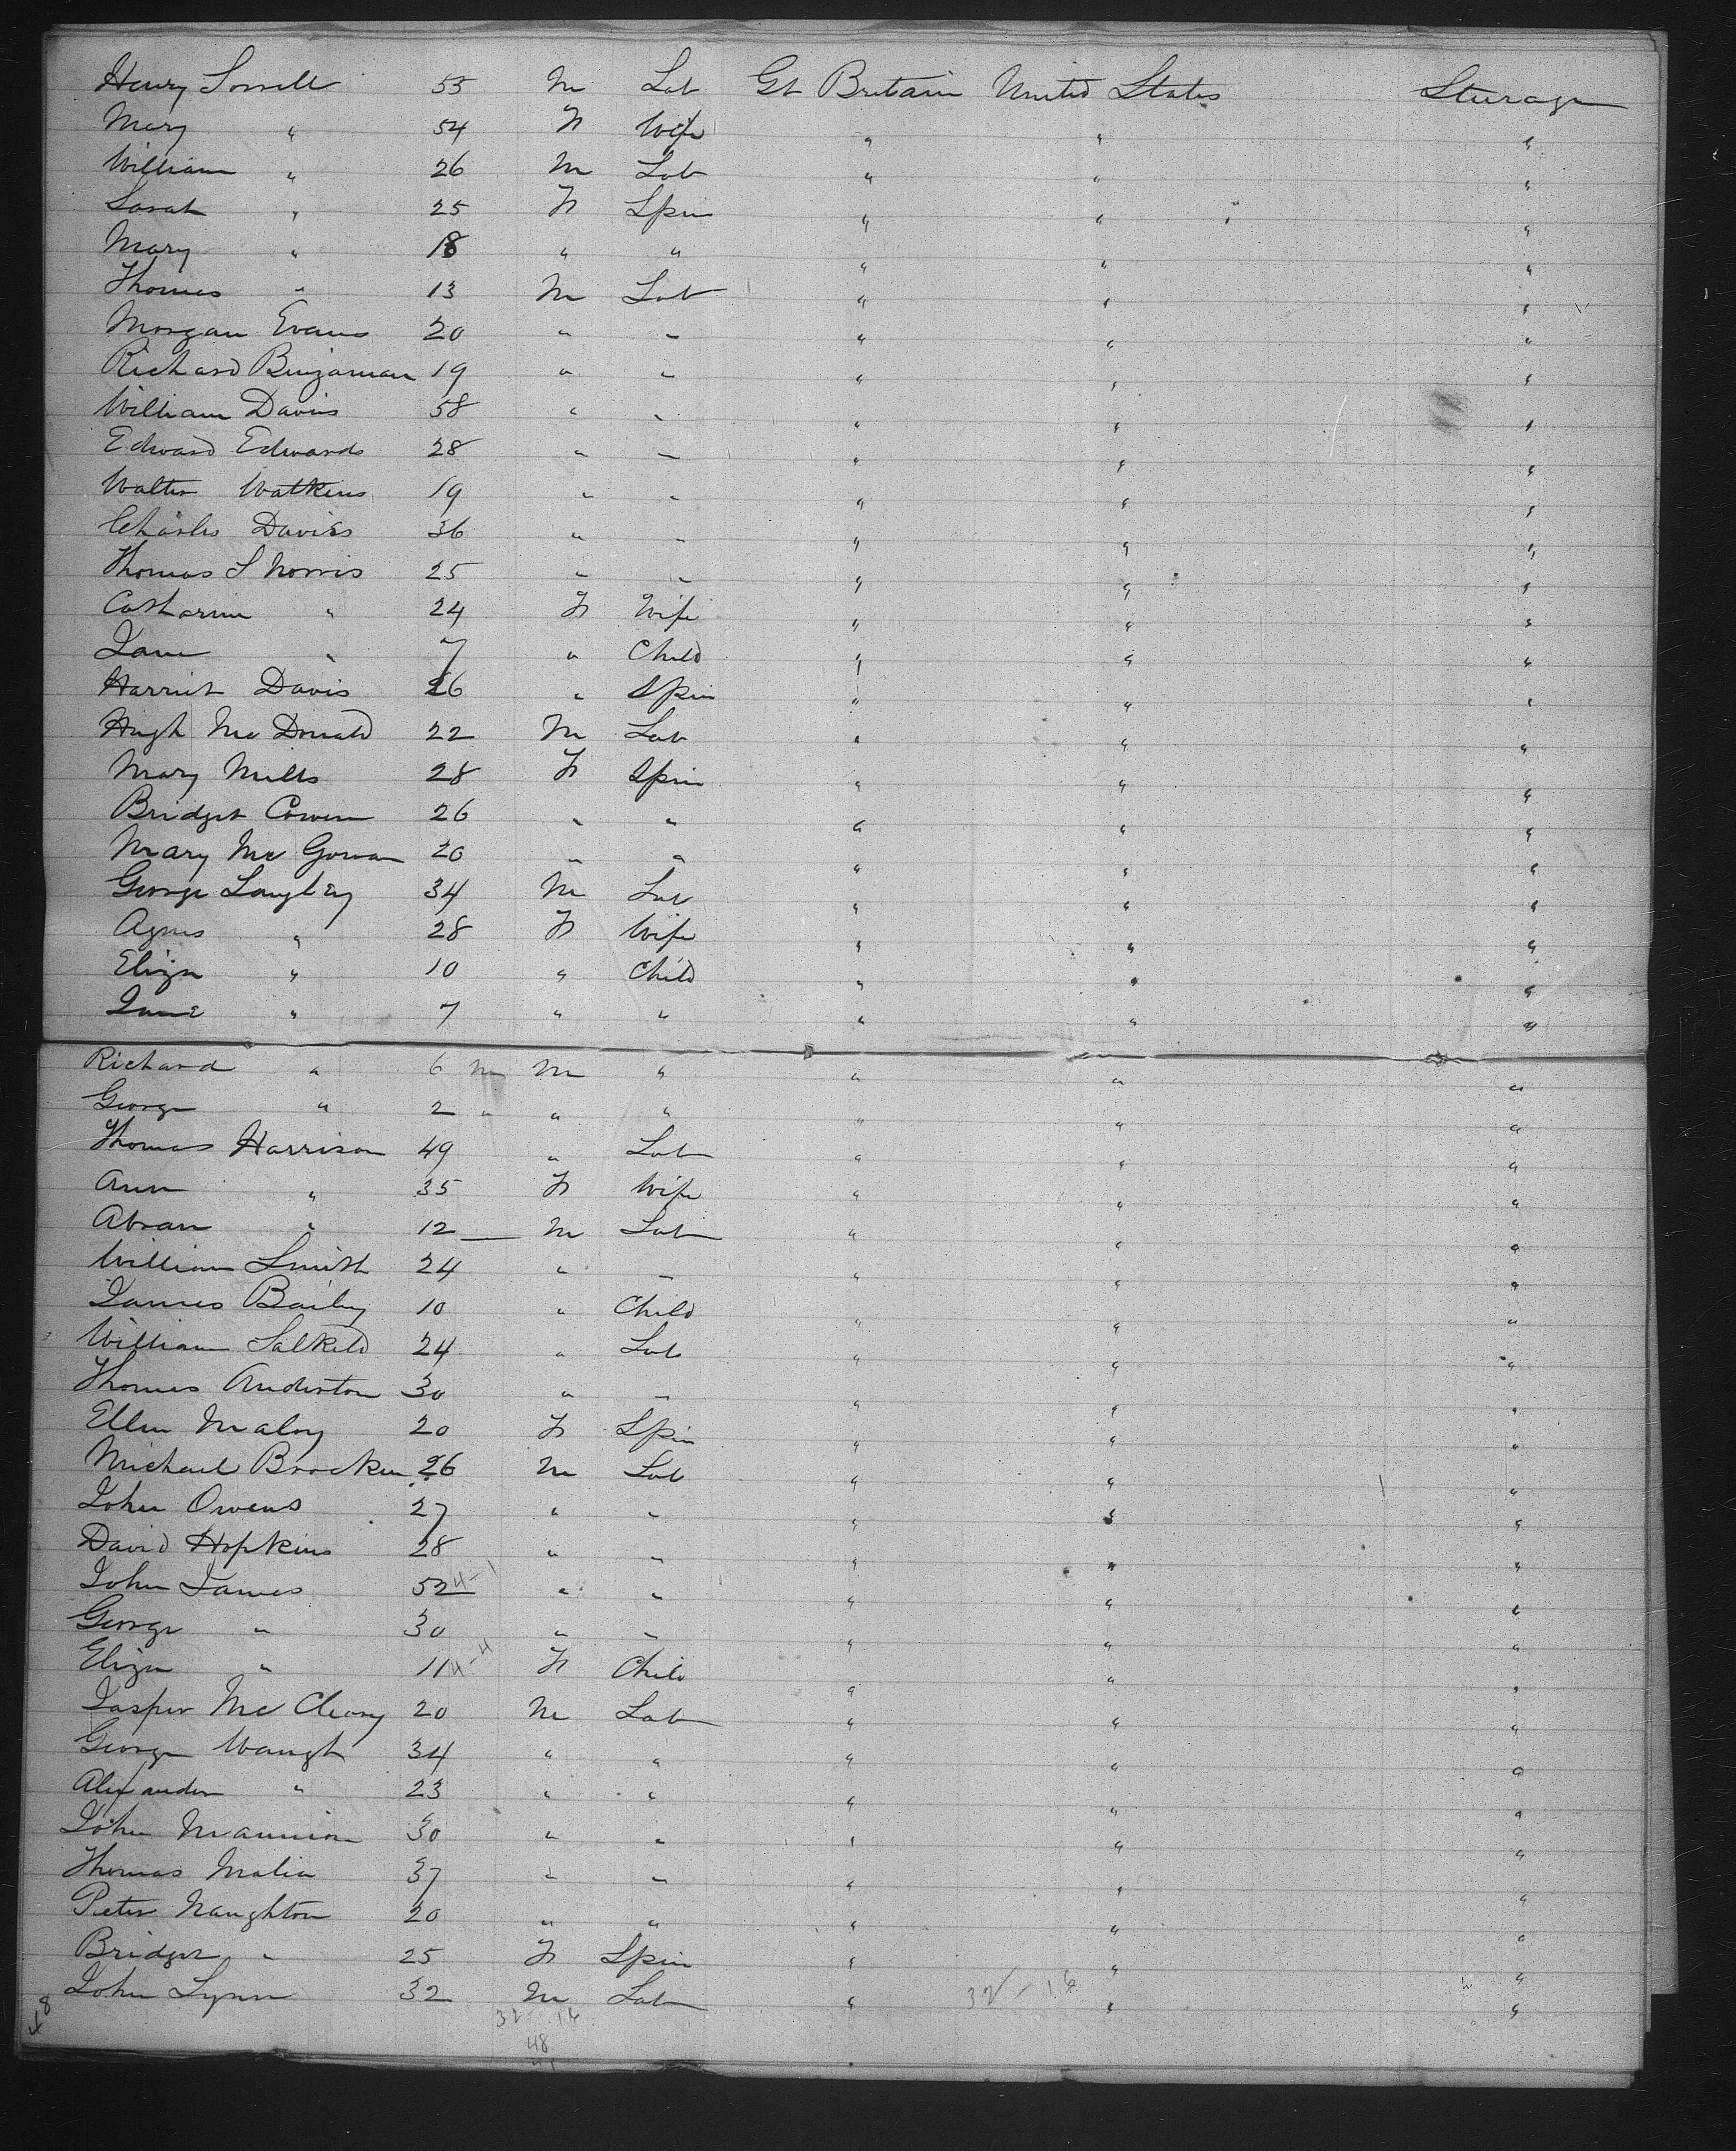 Henry Sorrell 53 M Lab Gt Britain United States Steerage
Mary " 54 F Wife " " "
William " 26 M Lab " " "
Sarah " 25 F Spin " " "
Mary " 18 " " " " "
Thomas " 13 M Lab " " "
Morgan Evans 20 " " " " "
Richard Benjaman 19 " " " " "
William Davis 58 " " " " "
Edward Edwards 28 " " " " "
Walter Watkins 19 " " " " "
Charles Davies 36 " " " " "
Thomas S Norris 25 " " " " "
Catharine " 24 F Wife " " "
Jane " 7 " Child " " "
Harriet Davis 26 " Spin " " "
Hugh Mc Donald 22 M Lab " " "
Mary Mills 28 F Spin " " "
Bridget Cowen 26 " " " " "
Mary Mc Gowan 20 " " " " "
George Langley 34 M Lab " " "
Agnes " 28 F Wife " " "
Eliza " 10 " Child " " "
Jane " 7 " " " " "
Richard " 6 m M " " " "
George " 2 " " " " " "
Thomas Harrison 49 " Lab " " "
Ann " 35 F Wife " " "
Abram " 12 M Lab " " "
William Smith 24 " " " " "
James Bailey 10 " Child " " "
William Salkeld 24 " Lab " " "
Thomas Anderton 30 " " " " "
Ellen Maloy 20 F Spin " " "
Michael Bracken 26 M Lab " " "
John Owens 27 " " " " "
David Hopkins 28 " " " " "
John James 52 4-1 " " " " "
George " 30 " " " " "
Eliza " 11 4-4 F Child " " "
Jasper Mc Cleary 20 M Lab " " "
George Waugh 34 " " " " "
Alexander " 23 " " " " "
John Mannion 30 " " " " "
Thomas Malia 37 " " " " "
Peter Naughton 20 " " " " "
Bridget " 25 F Spin " " "
John Lynn 32 M Lab " " "
32 - 16
32 16
48
48